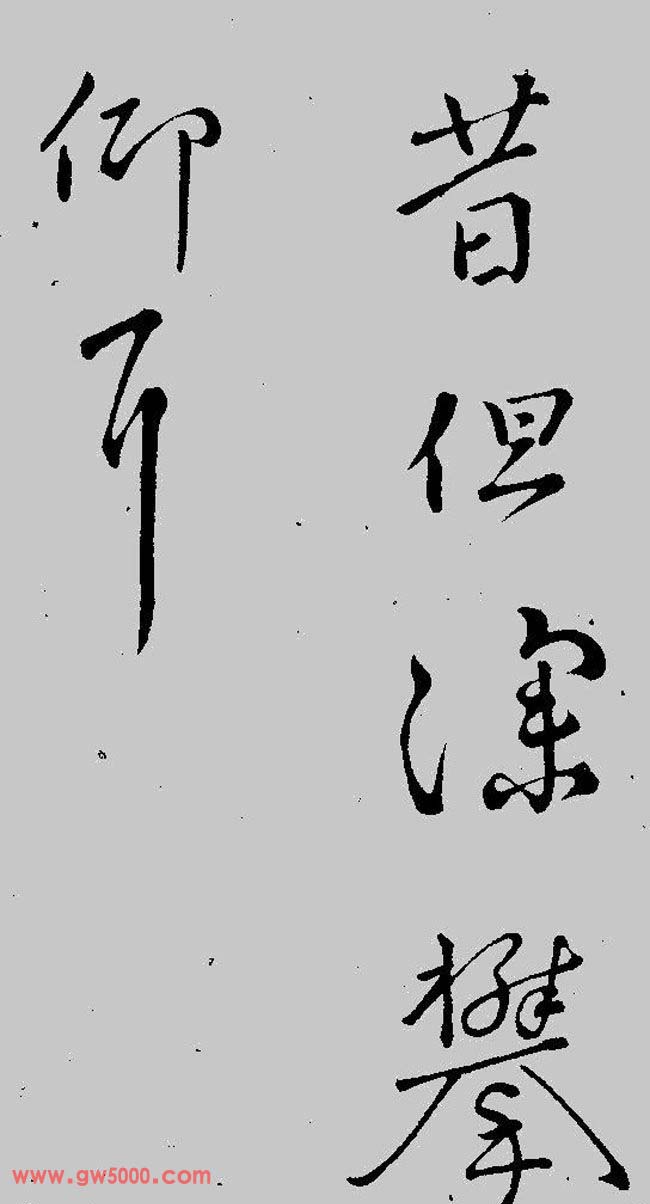 昔但深攀
仰耳
www.gw5000.com